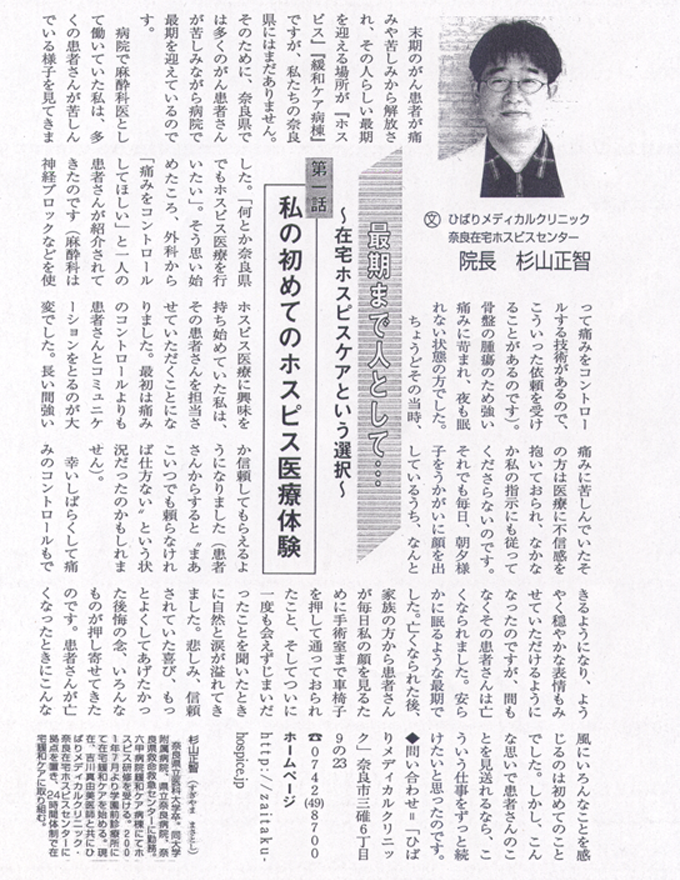 文 ひばりメディカルクリニック
奈良在宅ホスピスセンター
院長 杉山正智
最期まで人として…
〜在宅ホスピスケアという選択〜
第一話
私の初めてのホスピス医療体験
末期のがん患者が痛
みや苦しみから解放さ
れ、その人らしい最期
を迎える場所が『ホス
ピス』『緩和ケア病棟』
ですが、私たちの奈良
県にはまだありません。
そのために、奈良県で
は多くのがん患者さん
が苦しみながら病院で
最期を迎えているので
す。
病院で麻酔科医とし
て働いていた私は、多
くの患者さんが苦しん
でいる様子を見てきま
した。「何とか奈良県
でもホスピス医療を行
いたい」。そう思い始
めたころ、外科から
「痛みをコントロール
してほしい」と一人の
患者さんが紹介されて
きたのです（麻酔科は
神経ブロックなどを使
って痛みをコントロー
ルする技術があるので、
こういった依頼を受け
ることがあるのです）。
骨盤の腫瘍のため強い
痛みに苛まれ、夜も眠
れない状態の方でした。
ちょうどその当時、
ホスピス医療に興味を
持ち始めていた私は、
その患者さんを担当さ
せていただくことにな
りました。最初は痛み
のコントロールよりも
患者さんとコミュニケ
ーションをとるのが大
変でした。長い間強い
痛みに苦しんでいたそ
の方は医療に不信感を
抱いておられ、なかな
か私の指示にも従って
くださらないのです。
それでも毎日、朝夕様
子をうかがいに顔を出
しているうち、なんと
か信頼してもらえるよ
うになりました（患者
さんからすると〝まあ
こいつでも頼らなけれ
ば仕方ない〟という状
況だったのかもしれま
せん）。
幸いしばらくして痛
みのコントロールもで
きるようになり、よう
やく穏やかな表情もみ
せていただけるように
なったのですが、間も
なくその患者さんは亡
くなられました。安ら
かに眠るような最期で
した。亡くなられた後、
家族の方から患者さん
が毎日私の顔を見るた
めに手術室まで車椅子
を押して通っておられ
たこと、そしてついに
一度も会えずじまいだ
ったことを聞いたとき
に自然と涙が溢れてき
ました。悲しみ、信頼
されていた喜び、もっ
とよくしてあげたかっ
た後悔の念、いろんな
ものが押し寄せてきた
のです。患者さんが亡
くなったときにこんな
風にいろんなことを感
じるのは初めてのこと
でした。しかし、こん
な思いで患者さんのこ
とを見送れるなら、こ
ういう仕事をずっと続
けたいと思ったのです。
◆問い合わせ＝「ひば
りメディカルクリニッ
ク」奈良市三碓6丁目
9の23
☎0742(49)8700
ホームページ
http://zaitaku-
hospice.jp
杉山正智（すぎやま まさとし）
奈良県立医科大学卒。同大学
附属病院、県立奈良病院、奈
良県救命救急センターに勤務。
六甲病院緩和ケア病棟にてホ
スピス研修を受ける。200
1年7月より学園前診療所に
て在宅緩和ケアを始める。現
在、吉川真由美医師と共にひ
ばりメディカルクリニック・
奈良在宅ホスピスセンターに
拠点を置き、24時間体制で在
宅緩和ケアに取り組む。